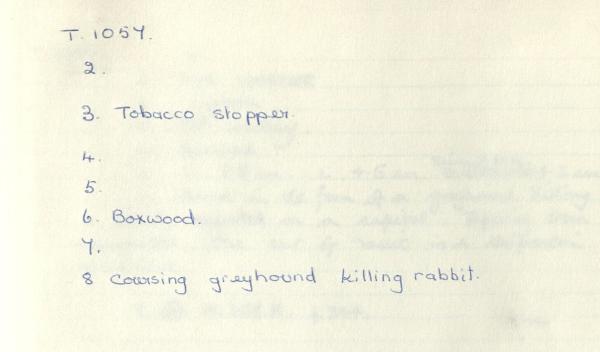 T. 1057.
2.
3. Tobacco stopper.
4.
5.
6. Boxwood.
7.
8 Coursing greyhound killing rabbit.